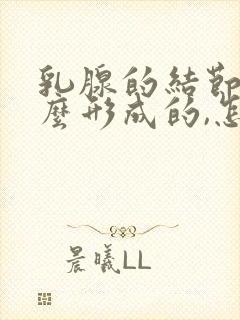 乳腺的結節
麼形成的,怎
晨曦LL